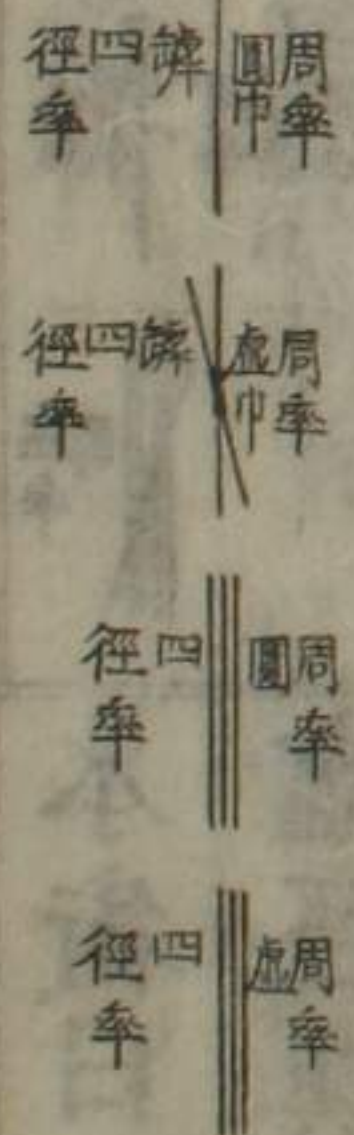 周率
圓巾
四
徑率
周率
虚巾
四
徑率
周率
圓
四
徑率
周率
虚
四
徑率